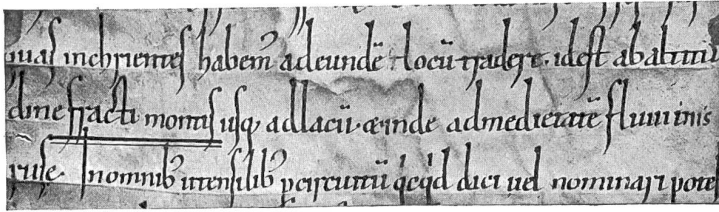 uas inchrientes habem̄ ad eundē locū tradere. id est ab altitu
dine fracti montis usq; ad lacū. & inde ad medietatē fluminis
ruse. In omnib; utensilib; p circuitū qicqid dici uel nominari pote